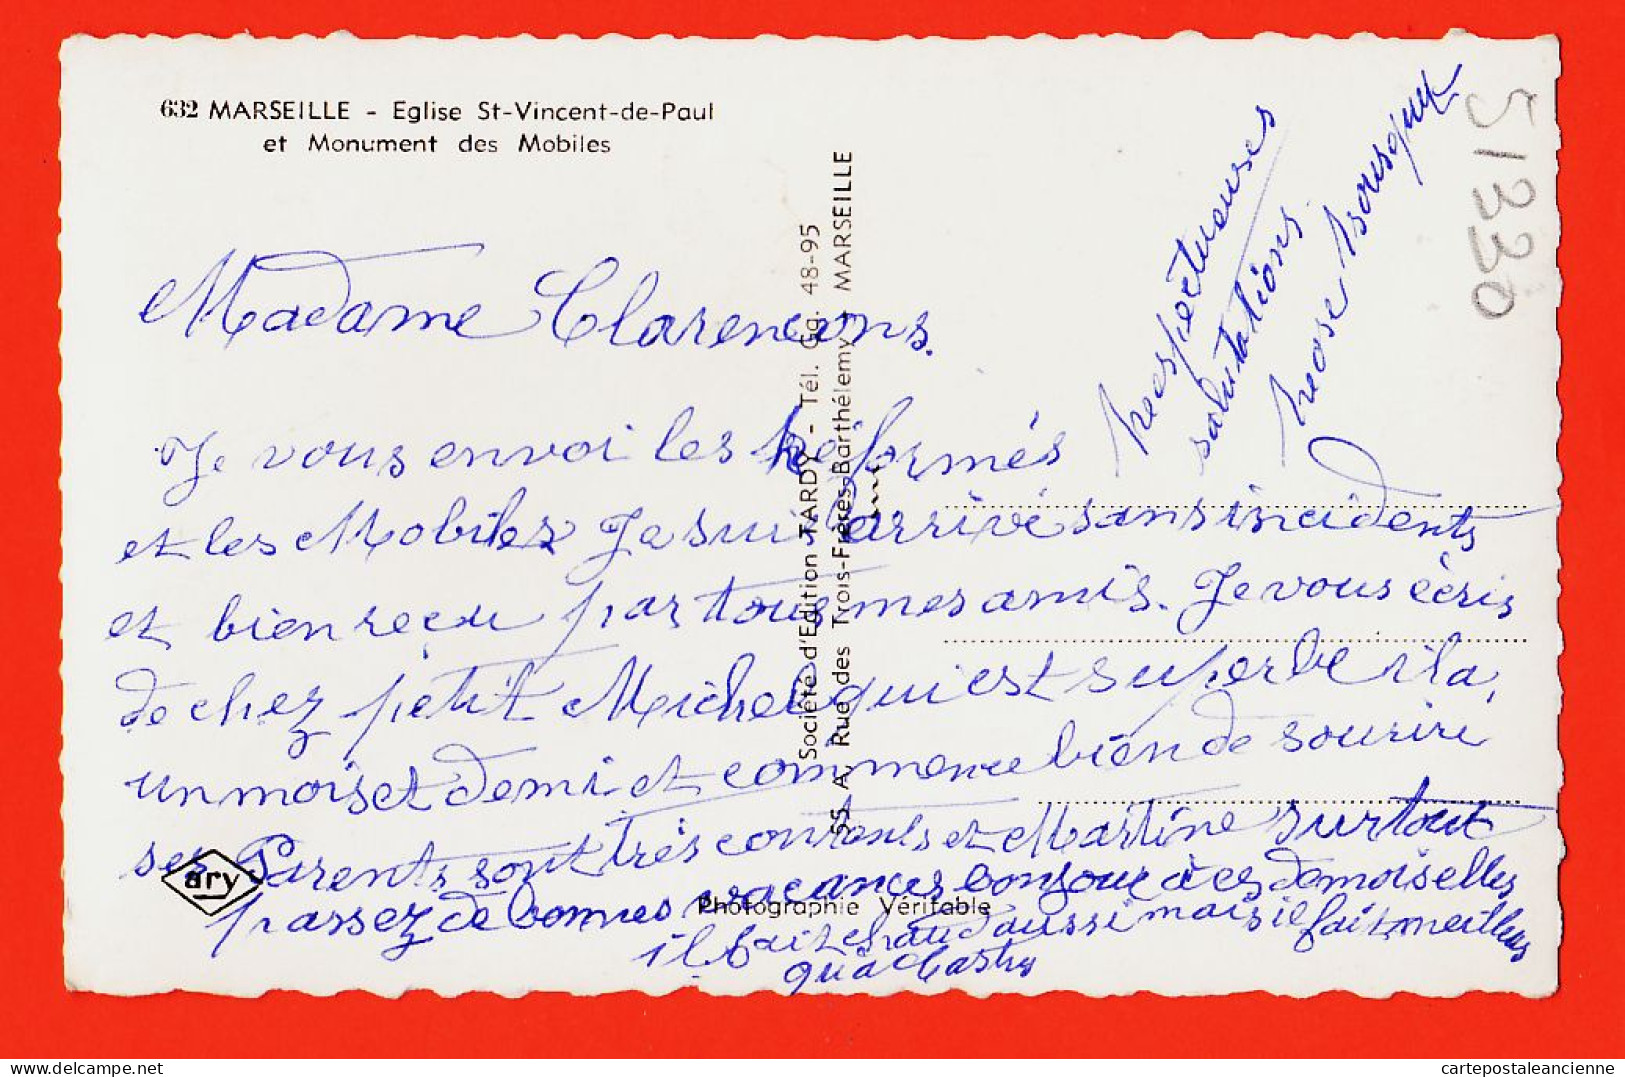 632 MARSEILLE - Eglise St-Vincent-de-Paul
et Monument des Mobiles
Madame Clarencons.
Je vous envoi les Réformés
et les Mobiles Je suis arrivé sans incidents
et bien reçu par tous mes amis. Je vous écris
de chez petit Michel qui est superbe il a,
un mois et demi et commence bien de sourire
ses Parents sont très contents et Martine surtout
passez de bonnes vacances bonjour à ces demoiselles
il fait chaud aussi mais il fait meilleur
qu'à Castres
respectueuses
salutations.
Rose Bousquet
51330
Société d'Edition TARDY - Tél. Gg. 48-95
55 A, Rue des Trois-Frères-Barthélemy - MARSEILLE
ary
Photographie Véritable
cartepostaleancienne.com